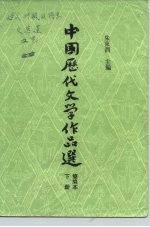 朱東潤 主編
中國歷代文学作品選
簡編本
下册